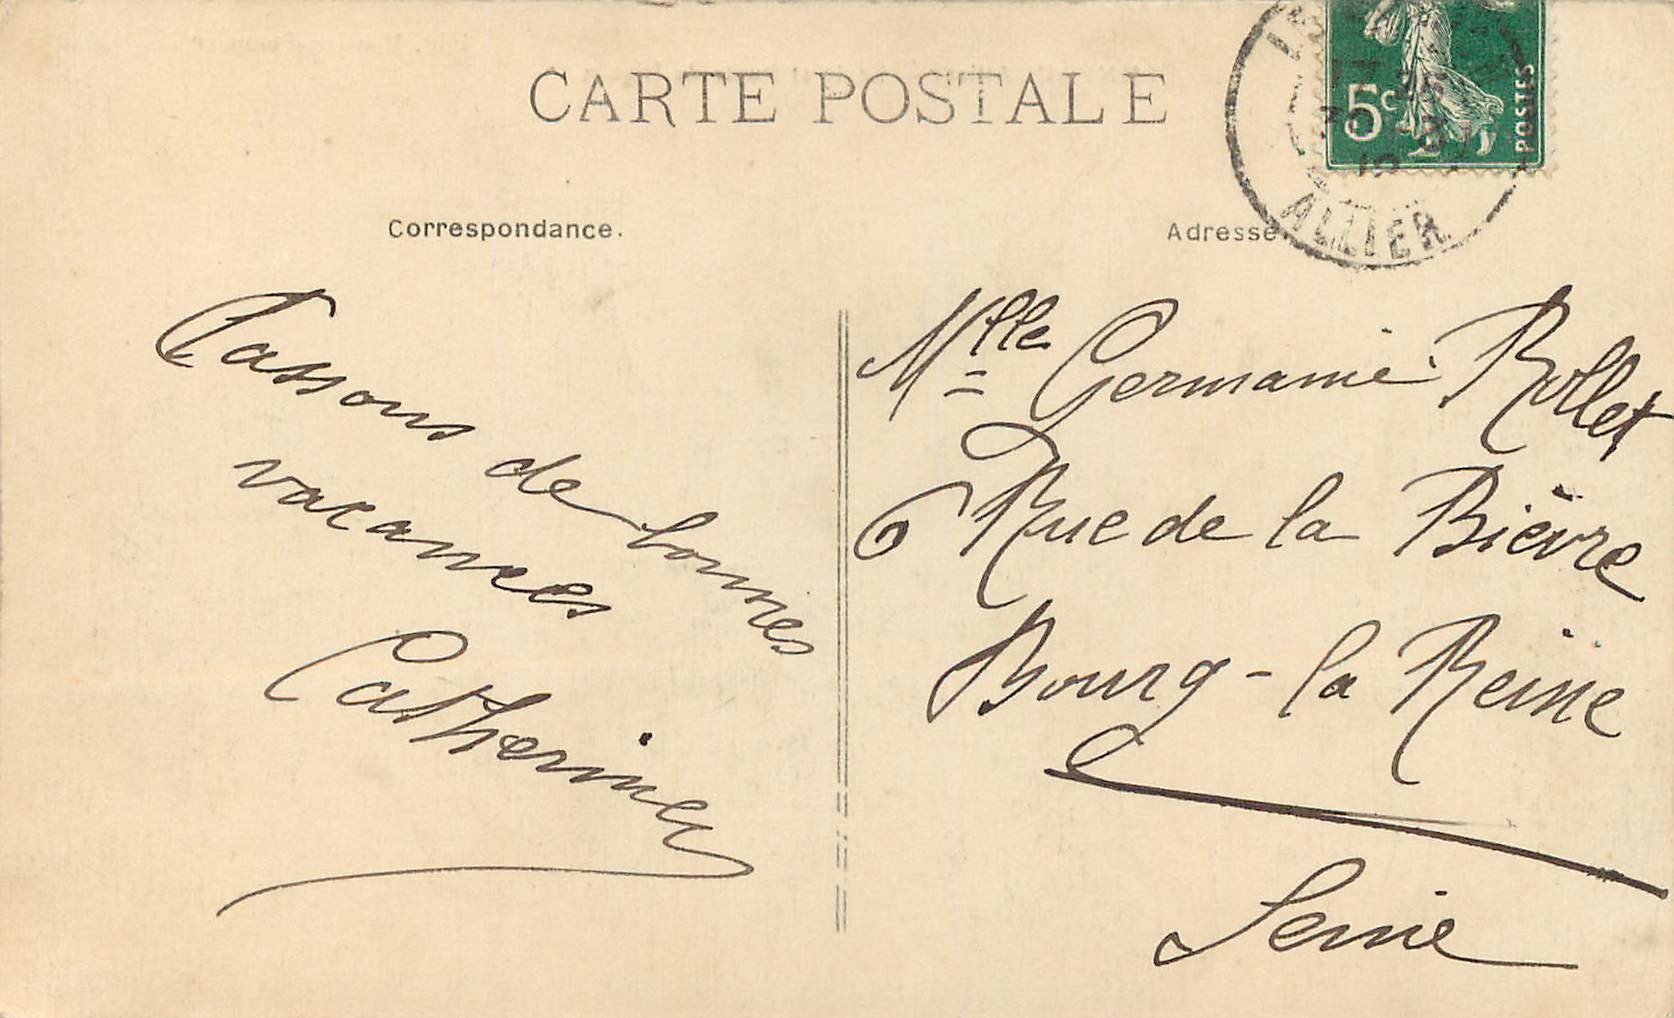 CARTE POSTALE
5c
POSTES
ALLIER
Correspondance.
Adresse
Passons de bonnes
vacances
Catherine
Mlle Germaine Rollet
6 Rue de la Bièvre
Bourg-la Reine
Seine